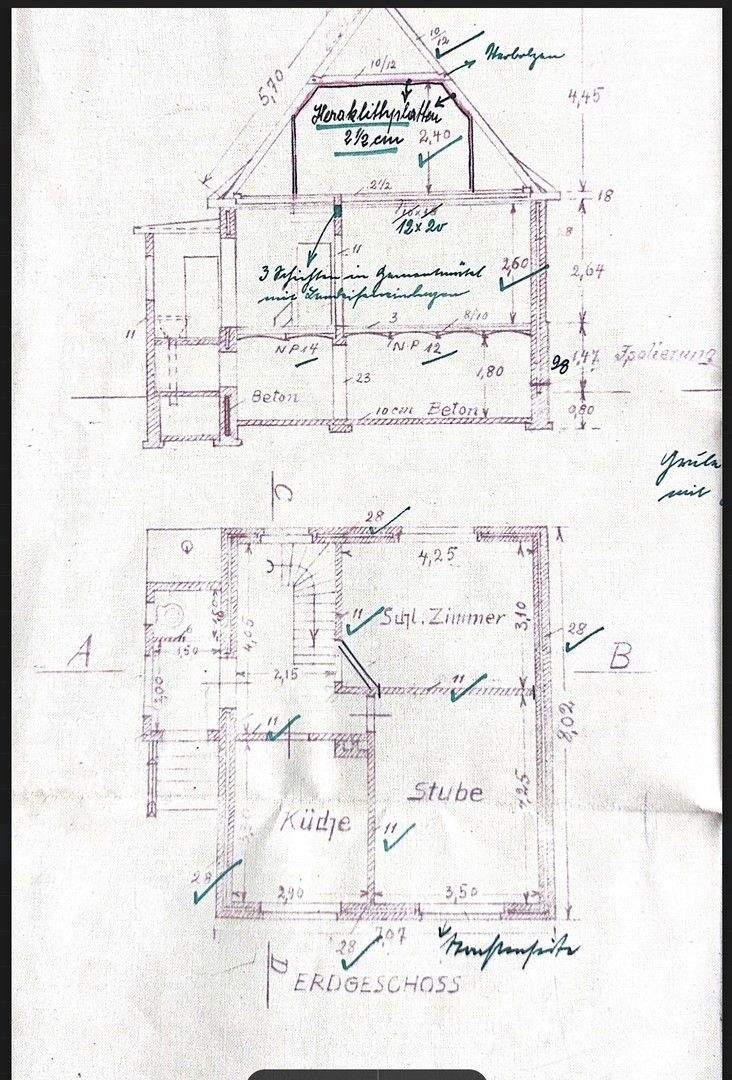 10/12
10/12
5,70
4,45
Heraklithplatten
2 1/2 cm
2,40
2 1/2
18
12 x 20
11
3 Schichten in Zementmörtel
mit Bandeiseneinlagen
2,60
2,64
11
3
8/10
NP 14
NP 12
1,80
1,47
Isolierung
Beton
23
10 cm Beton
0,80
mit
C
28
4,25
4,05
11
Schl. Zimmer
3,10
28
1,50
A
B
2,15
11
2,00
11
8,02
Stube
4,25
Küche
11
28
2,90
3,50
28
7,07
Straßenseite
D
ERDGESCHOSS